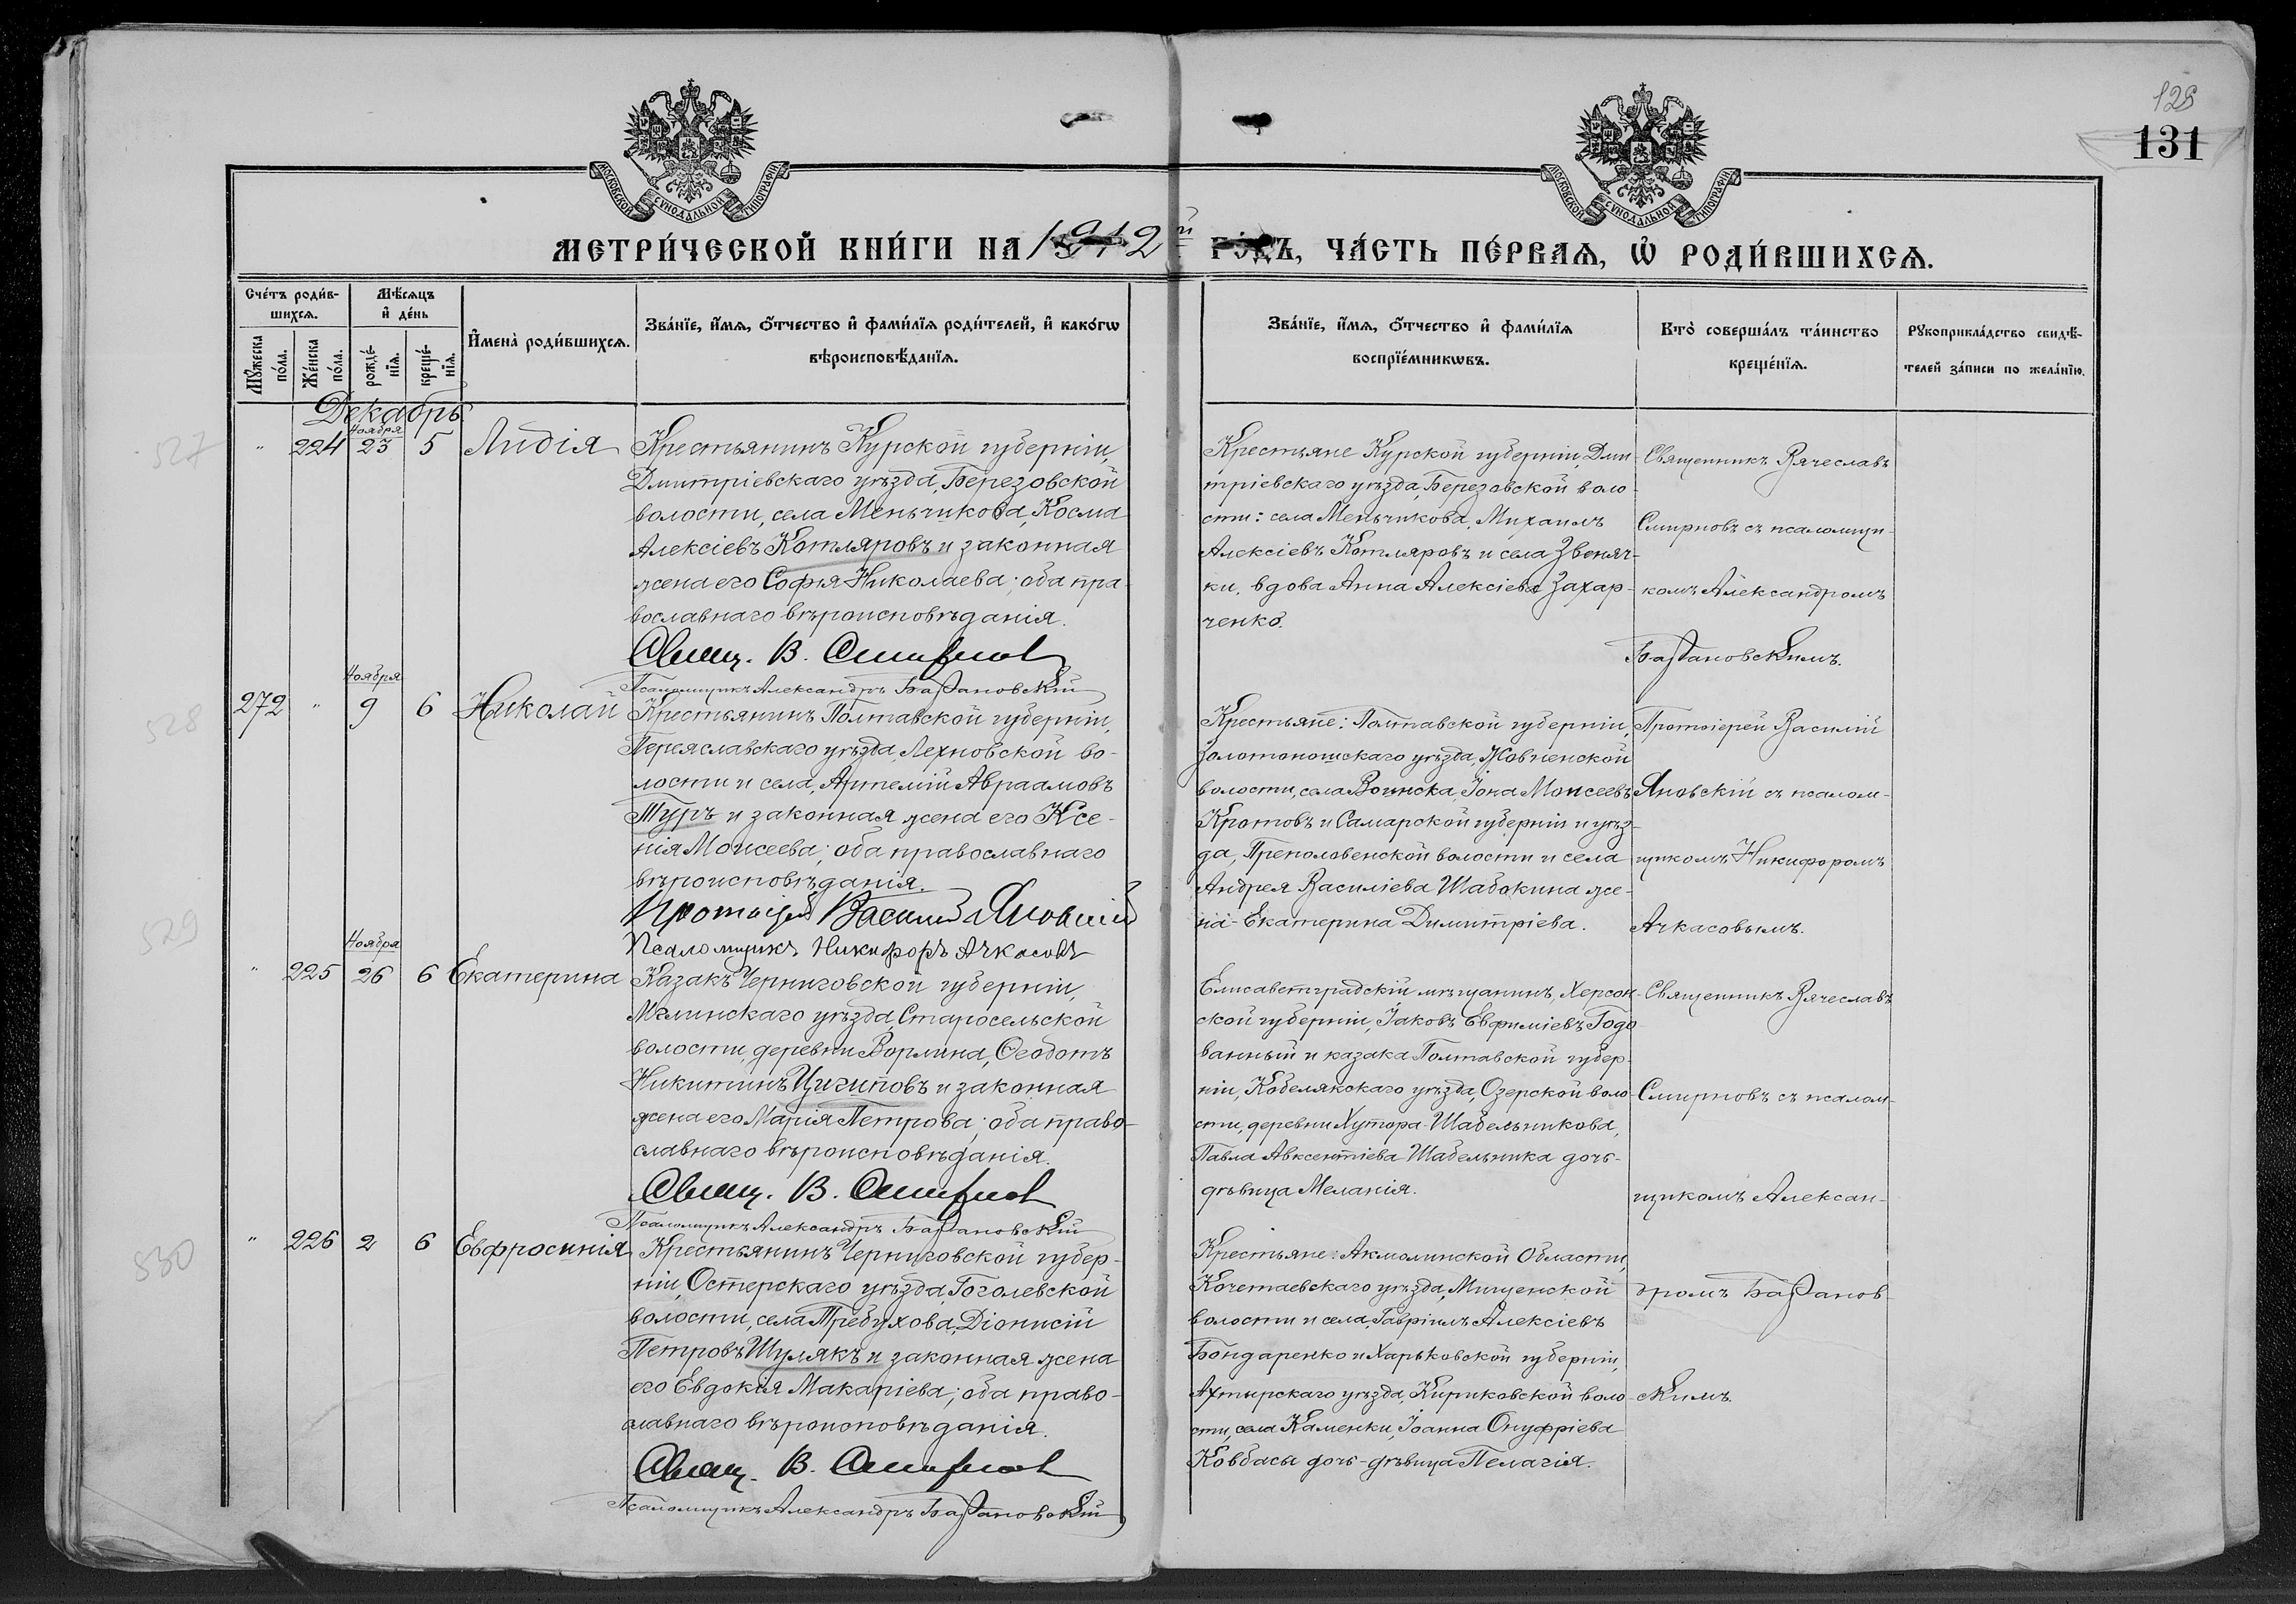 128
131
МОСКОВСКОЙ СѴНОДАЛЬНОЙ ТИПОГРАФІИ
МОСКОВСКОЙ СѴНОДАЛЬНОЙ ТИПОГРАФІИ
МЕТРИ́ЧЕСКОЙ КНИ́ГИ НА 1912й ГО́ДЪ, ЧА́СТЬ ПЕ́РВАѦ, Ѡ҆ РОДИ́ВШИХСѦ.
Сче́тъ роди́в-
шихсѧ.
Мꙋ́жеска по́ла.
Же́нска по́ла.
Мѣ́сѧцъ
и҆ де́нь
рожде́-
нїѧ.
креще́-
нїѧ.
И҆мена̀ роди́вшихсѧ.
Зва́нїе, и҆́мѧ, ѻ҆́тчество и҆ фами́лїѧ роди́телей, и҆ како́гѡ
вѣроисповѣ́данїѧ.
Зва́нїе, и҆́мѧ, ѻ҆́тчество и҆ фами́лїѧ
воспрїе́мникѡвъ.
Кто̀ соверша́лъ та́инство
креще́нїѧ.
Рꙋкоприкла́дство свидѣ́-
телей за́писи по жела́нїю.
Декабрь
527
" 224 Ноября 23 5 Лидія
Крестьянинъ Курской губерніи,
Дмитріевскаго уѣзда, Березовской
волости, села Меньчикова, Косма
Алексіевъ Котляровъ и законная
жена его Софья Николаева; оба пра-
вославнаго вѣроисповѣданія.
Свящ. В. Смирнов
Псаломщикъ Александръ Баэановскій
Крестьяне Курской губерніи, Дми-
тріевскаго уѣзда, Березовской воло-
сти: села Меньчикова, Михаилъ
Алексіевъ Котляровъ и села Звеняч-
ки, вдова Анна Алексіева Захар-
ченко.
Священникъ Вячеславъ
Смирновъ съ псаломщи-
комъ Александромъ
528
272 " Ноября 9 6 Николай
Крестьянинъ Полтавской губерніи,
Переяславскаго уѣзда, Лехновской во-
лости и села, Артемій Авраамовъ
Туръ и законная жена его Ксе-
нія Моисеева; оба православнаго
вѣроисповѣданія.
Протоіерей Василий Яновский
Псаломщикъ Никифоръ Ачкасовъ
Крестьяне: Полтавской губерніи,
Золотоношскаго уѣзда, Жовненской
волости, села Воинска, Іона Моисеевъ
Кротовъ и Самарской губерніи и уѣз-
да, Преполовенской волости и села
Андрея Василіева Шабокина же-
на - Екатерина Димитріева.
Протоіерей Василій
Яновскій съ псалом-
щикомъ Никифоромъ
Ачкасовымъ.
529
" 225 Ноября 26 6 Екатерина
Казакъ Черниговской губерніи,
Мглинскаго уѣзда, Старосельской
волости, деревни Ворлина, Ѳеодотъ
Никитинъ Цигиповъ и законная
жена его Марія Петрова; оба право-
славнаго вѣроисповѣданія.
Свящ. В. Смирнов
Псаломщикъ Александръ
Елисаветградскій мѣщанинъ, Херсон-
ской губерніи, Іаковъ Евфиміевъ Годо
ванный и казака Полтавской губер-
ніи, Кобелякскаго уѣзда, Озерской воло-
сти, деревни Хутора - Шабельникова,
Павла Авксентіева Шабельника дочь-
дѣвица Меланія.
Священникъ Вячеславъ
Смирновъ съ псалом-
щикомъ Алексан-
530
" 226 2 6 Евфросинія
Крестьянинъ Черниговской губер-
ніи, Остерскаго уѣзда, Гоголевской
волости, села Требухова, Діонисій
Петровъ Шулякъ и законная жена
его Евдокія Макаріева; оба право-
славнаго вѣроисповѣданія.
Свящ. В. Смирнов
Псаломщикъ Александръ
Крестьяне: Акмолинской Области,
Кочетаевскаго уѣзда, Мищенской
волости и села, Гавріилъ Алексіевъ
Бондаренко и Харьковской губерніи,
Ахтырскаго уѣзда, Кириковской воло-
сти, села Каменки, Іоанна Онуфріева
Ковбасы дочь - дѣвица Пелагія.
дромъ
скимъ.